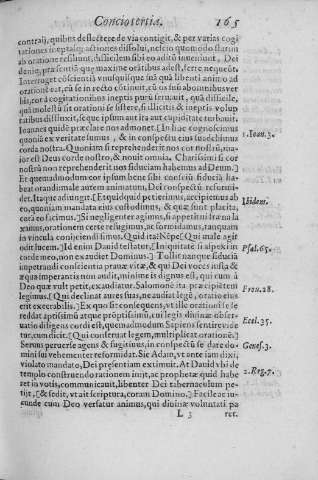 Conciotertia. 165
contraij, quibus deflectere de via contigit, & per varias cogi
tationes ineptasq; actiones dissolui, nescio quomodo statim
ab oratione resiliunt, difficilem sibi eo aditū inueniunt. Dei
deniq; præsentiā quę maxime oratibus adest, ferre nequeūt.
Interroget cōscientiā vnusquisque suā quā libenti animo ad
orationē eat, cū se in recto cōtinuit, cū os suū abomitibus ver
bis, cor à cogitationibus ineptis purū seruauit, quā difficile,
quā molestū sit orationi se sistere, si illicitis & ineptis volup
tatibus diffluxit, seque ipsum aut ira aut cupiditate turbauit.
Ioannes quidē præclare nos admonet. [In huc cognoscimus
quoniā ex veritate sumus, & in conspectu eius suedebimus
corda nostra. Quoniam si reprehenderit nos cor nostrū, ma
ior est Deus corde nostro, & nouit omnia. Charissimi si cor
nostrū non reprehenderit nos fiduciam habemus ad Deum.]
Et quemadmodum cor ipsum bene sibi consciū fiduciā ha-
beat orandi, male autem animatum, Dei conspectū reformi-
det. Itaque adiungit. [Et quidquid petierimus, accipiemus ab
eo, quoniam mandata eius custodimus, & quæ sunt placita,
corā eo facimus.] Si negligenter agimus, si appetitui fræna la
xamus, orationem certe refugimus, ac formidamus, tanquam
in vincula coniiciendi simus. Quid ita? Nēpe [Qui male agit
odit lucem.] Id enim Dauid testatur, [Iniquitatē si aspexi in
corde meo, non exaudiet Dominus.] Tollit nanque fiduciā
impetrandi conscientia prauæ vitæ, & qui Dei voces iussa &
æqua imperantis non audit, minime is dignus est, qui cum à
Deo quæ vult petit, exaudiatur. Salomonē ita præcipiētem
legimus. [Qui declinat aures suas, ne audiat legē, oratio eius
erit execrabilis. Ex quo fit consequens, vt ille orationi se
reddat aptissimū atque prōptissimū, cui legis diuinæ obser-
uatio diligens cordi est, quemadmodum Sapiens sentire vide
tur, cum dicit. [Qui conseruat legem, multiplicat orationē.]
Serum peruerse agens & fugitiuus, in conspectū se dare do-
mini sui vehementer reformidat. Sic Adam, vt ante iam dixi,
violato mandato, Dei præsentiam extimuit. At Dauid vbi de
templo construendo rationem iniit, ac prophetæ quid habe
ret in votis, communicauit, libenter Dei tabernaculum pe-
tiit, [& sedit, vt ait scriptura, coram Domino.] Facile ac iu-
cunde cum Deo versatur animus, qui diuinæ voluntati pa
L 3 ret.
1. Ioan. 3.
Ibidem.
Psal. 65.
Prou. 28.
Eccl. 35.
Genes. 3.
2. Reg. 7.